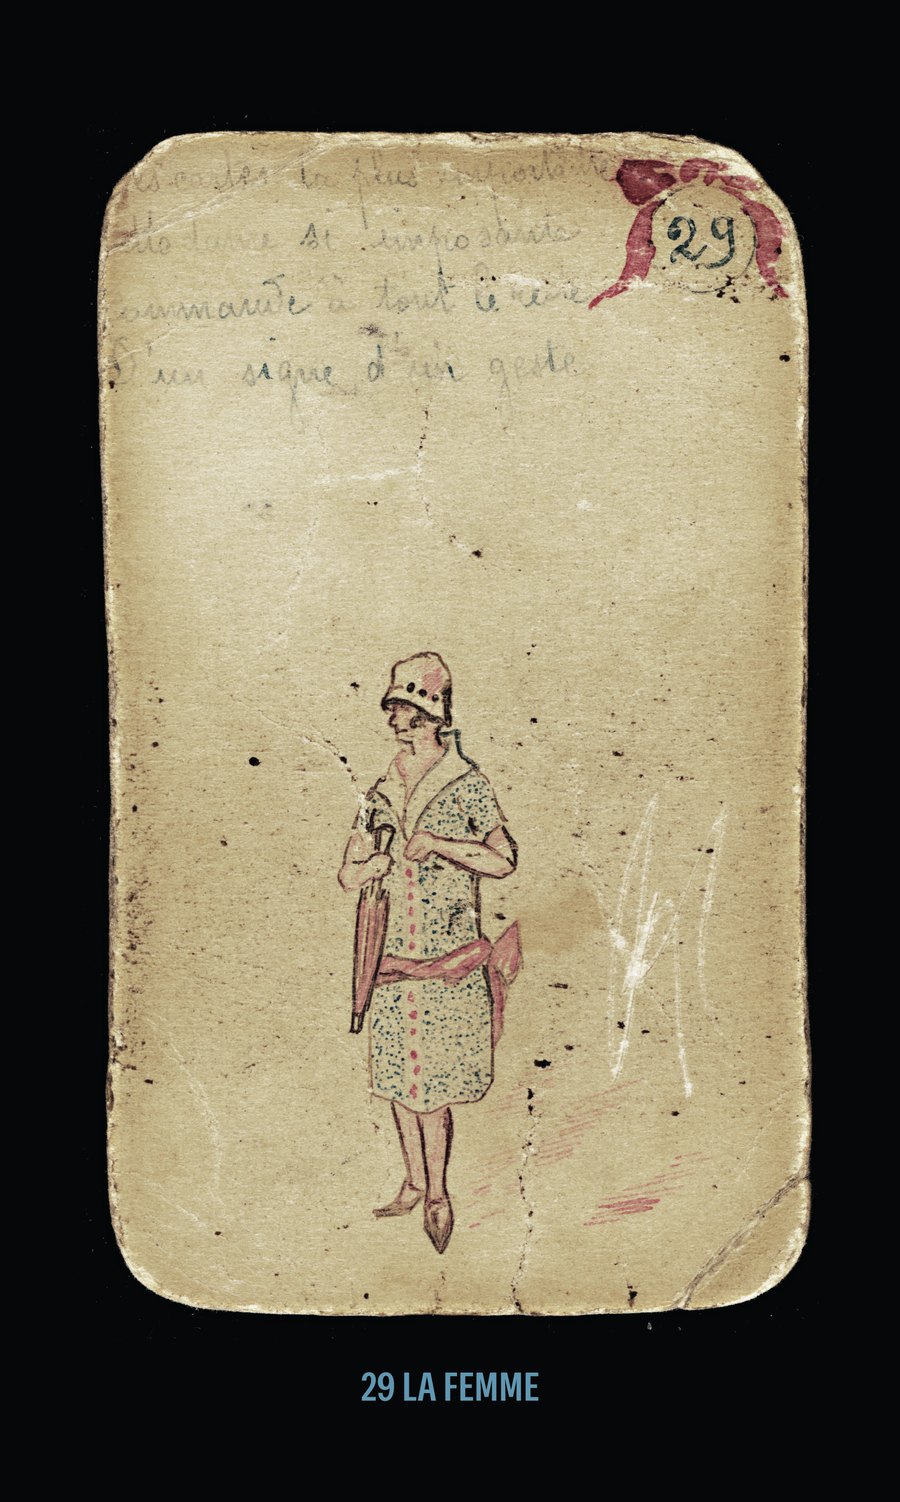 29
des cartes la plus importante
dame si imposante
commande à tout le reste
D'un signe d'un geste
29 LA FEMME